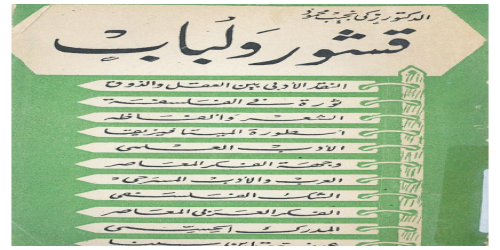 الدكتور زكي نجيب محمود
قشور ولباب
النقد الأدبي بين العقل والذوق
ثورة في الفلسفة
الشعر وألفاظه
أسطورة الميتافيزيقا
الأدب العلمي
وجهة الفكر المعاصر
العرب والأدب المسرحي
الشك الفلسفي
الفكر العربي المعاصر
المدرك الحسي
ابن سينا